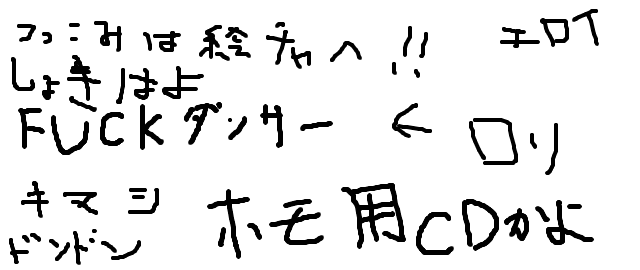 つっこみは絵チャへ!! エロイ
しょきりはよ
FUCKダンサー ← ロリ
キマシ
ドンドン ホモ用CDかよ